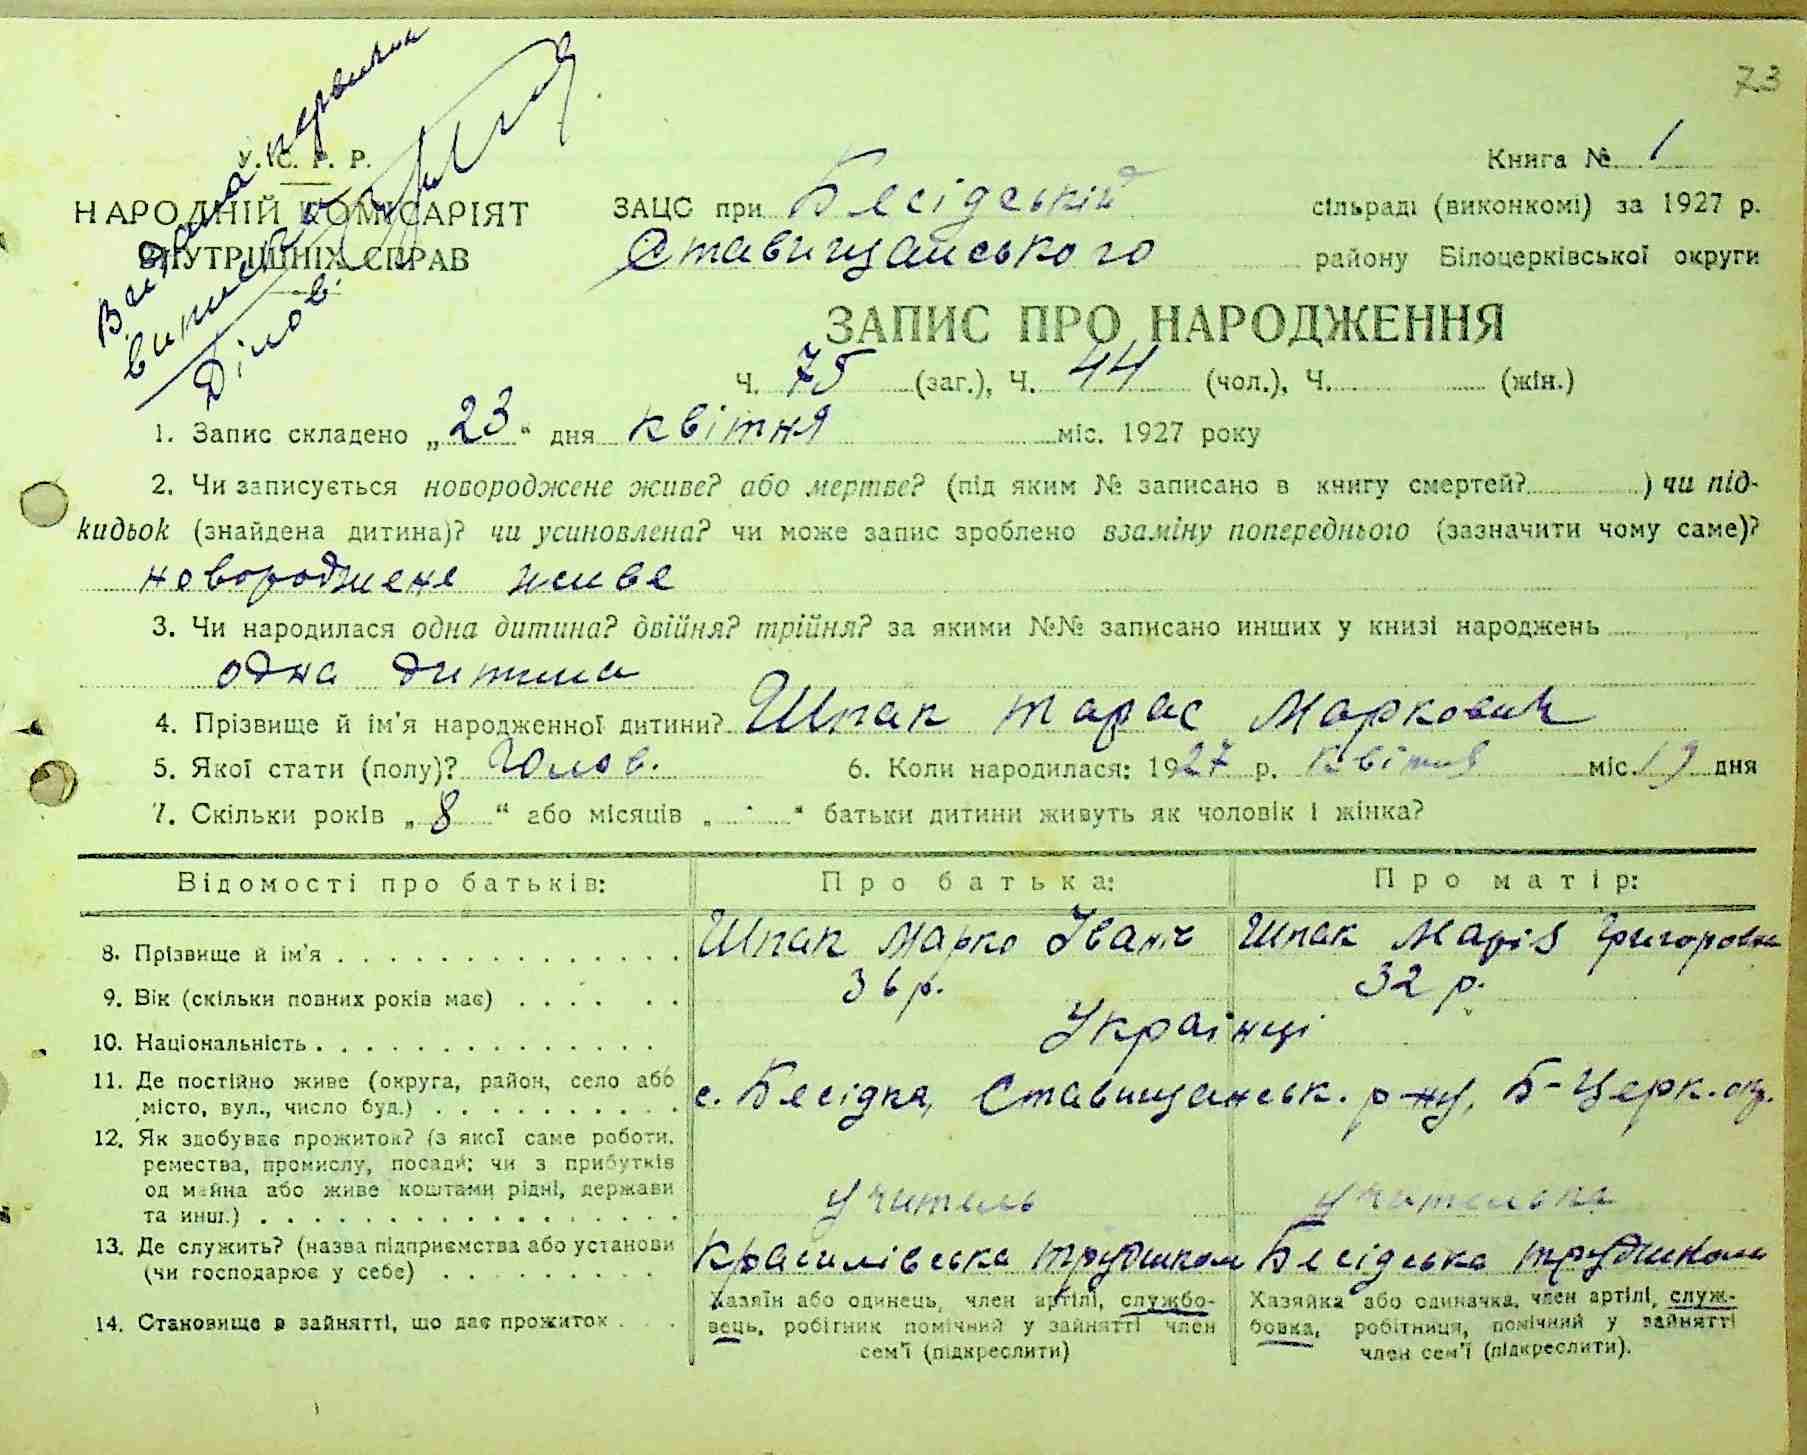 73
Видана первична
виписка
Діловов
У. С. Р. Р.
НАРОДНІЙ КОМІСАРІЯТ
ВНУТРІШНІХ СПРАВ
Книга № 1
ЗАЦС при Бесідській сільраді (виконкомі) за 1927 р.
Ставищанського району Білоцерківської округи
ЗАПИС ПРО НАРОДЖЕННЯ
Ч. 75 (заг.), Ч. 44 (чол.), Ч. (жін.)
1. Запис складено „23“ дня квітня міс. 1927 року
2. Чи записується новороджене живе? або мертве? (під яким № записано в книгу смертей? ) чи під-
кидьок (знайдена дитина)? чи усиновлена? чи може запис зроблено взаміну попереднього (зазначити чому саме)?
новороджене живе
3. Чи народилася одна дитина? двійня? трійня? за якими №№ записано инших у книзі народжень
одна дитина
4. Прізвище й ім'я народженної дитини? Шпак Тарас Маркович
5. Якої стати (полу)? Чолов. 6. Коли народилася: 1927 р. квітня міс. 19 дня
7. Скільки років „8“ або місяців „-“ батьки дитини живуть як чоловік і жінка?
Відомості про батьків: Про батька: Про матір:
8. Прізвище й ім'я Шпак Марко Іваніч Шпак Марія Григоровна
9. Вік (скільки повних років має) 36 р. 32 р.
10. Національність Українці
11. Де постійно живе (округа, район, село або
місто, вул., число буд.) с. Бесідка, Ставищанськ. р-ну, Б-Церк. окр.
12. Як здобуває прожиток? (з якої саме роботи,
ремества, промислу, посади; чи з прибутків
од майна або живе коштами рідні, держави
та инш.) учитель учителька
13. Де служить? (назва підприємства або установи
(чи господарює у себе) Красилівська трудшкола Бесідська трудшкола
14. Становище в зайнятті, що дає прожиток
Хазяїн або одинець, член артілі, службо-
вець, робітник помічний у зайнятті член
сем'ї (підкреслити)
Хазяйка або одиначка, член артілі, служ-
бовка, робітниця, помічний у зайнятті
член сем'ї (підкреслити).